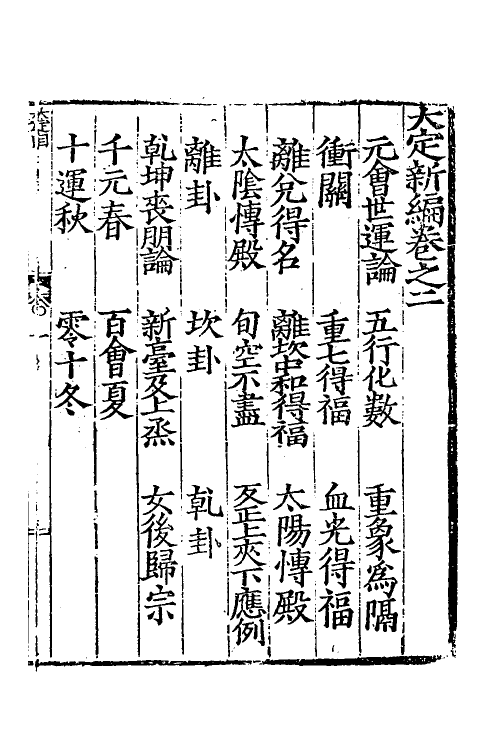 大定新編卷之二
元會世運論 五行化數 重象為隔
衝關 重七得福 血光得福
離兌得名 離坎中和得福 太陽愽殿
太陰愽殿 旬空不盡 反正上夾下應例
離卦 坎卦 乹卦
乹坤喪朋論 新臺及上烝 女後歸宗
千元春 百會夏
十運秋 零十冬